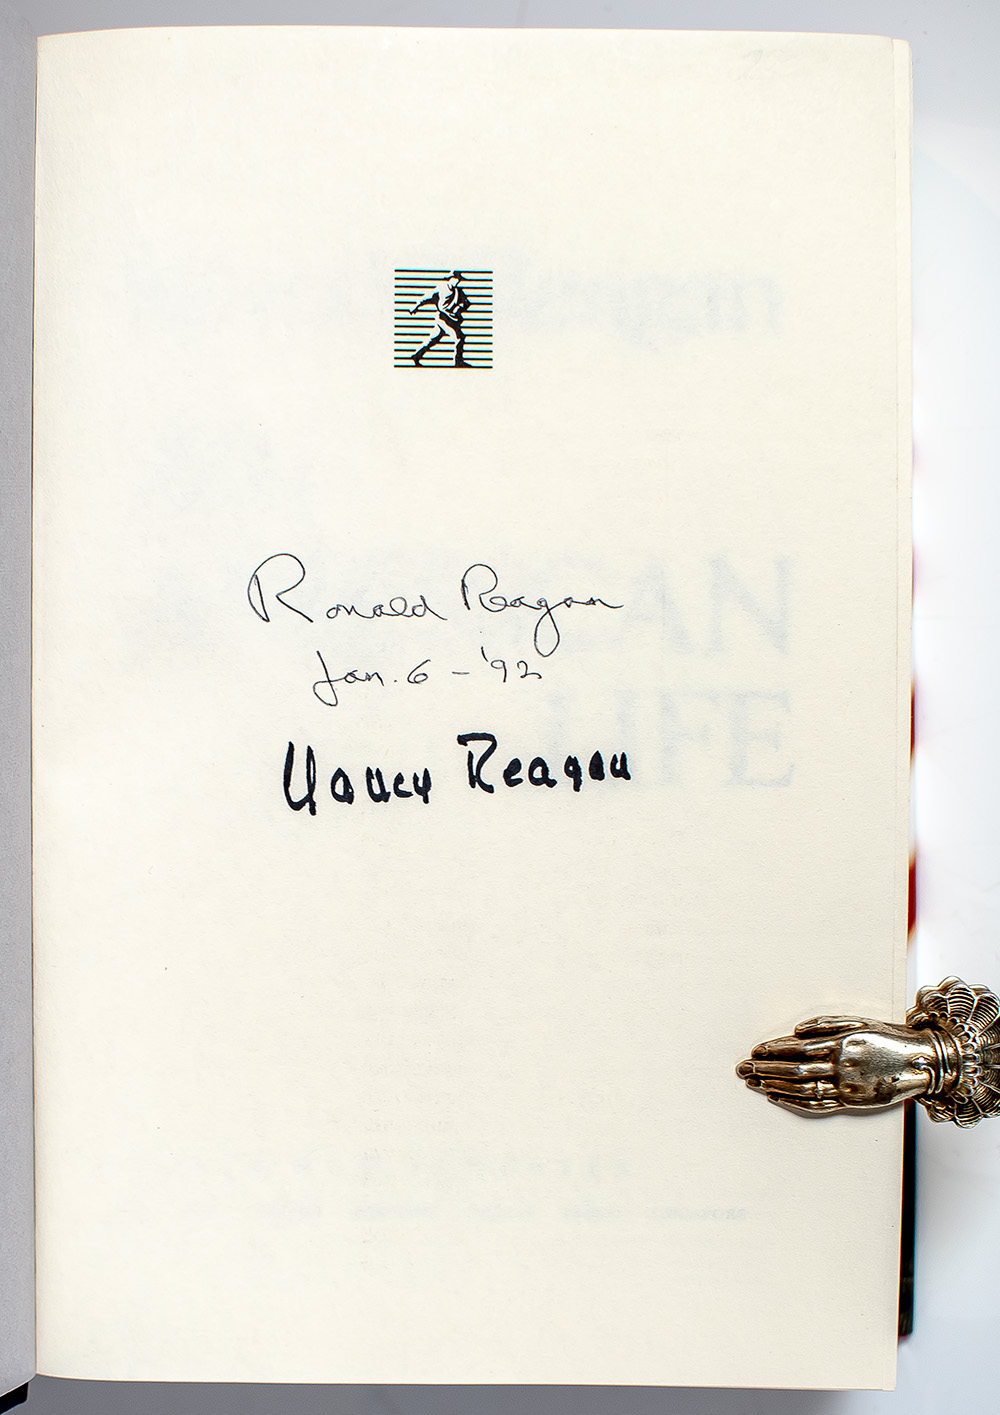 Ronald Reagan
Jan. 6 - '92
Nancy Reagan